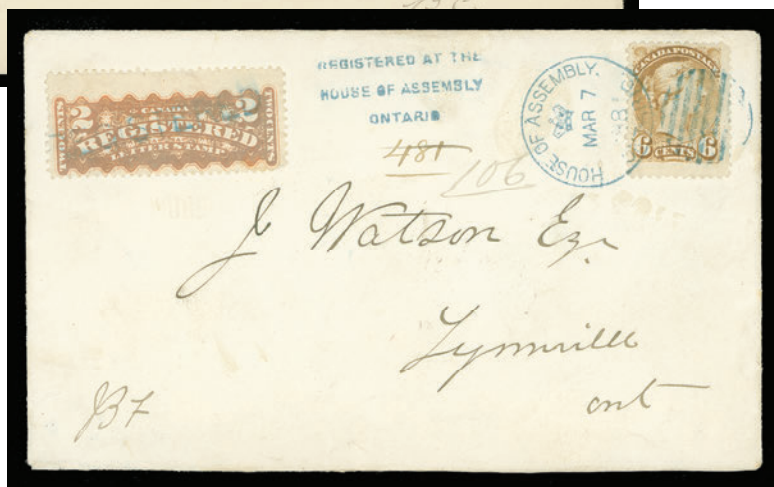 125
CANADA
2 2
REGISTERED
LETTER STAMP
TWO CENTS
TWO CENTS
REGISTERED AT THE
HOUSE OF ASSEMBLY
ONTARIO
481
106
HOUSE OF ASSEMBLY.
MAR 7
CANADA POSTAGE
6 CENTS 6
J Watson Esq
Lynnville
ont